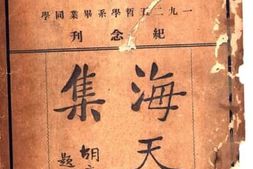 一九二五哲學系畢業同學
紀念刊
海天
集
胡
題